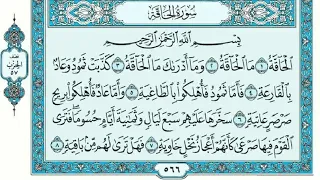 سُورَةُ الحَاقَّةِ
بِسْمِ اللَّهِ الرَّحْمَٰنِ الرَّحِيمِ
الْحَاقَّةُ ١ مَا الْحَاقَّةُ ٢ وَمَا أَدْرَاكَ مَا الْحَاقَّةُ ٣ كَذَّبَتْ ثَمُودُ وَعَادٌ
بِالْقَارِعَةِ ٤ فَأَمَّا ثَمُودُ فَأُهْلِكُوا بِالطَّاغِيَةِ ٥ وَأَمَّا عَادٌ فَأُهْلِكُوا بِرِيحٍ
صَرْصَرٍ عَاتِيَةٍ ٦ سَخَّرَهَا عَلَيْهِمْ سَبْعَ لَيَالٍ وَثَمَٰنِيَةَ أَيَّامٍ حُسُومًا فَتَرَى
الْقَوْمَ فِيهَا صَرْعَىٰ كَأَنَّهُمْ أَعْجَازُ نَخْلٍ خَاوِيَةٍ ٧ فَهَلْ تَرَىٰ لَهُم مِّن بَاقِيَةٍ ٨
٥٦٦